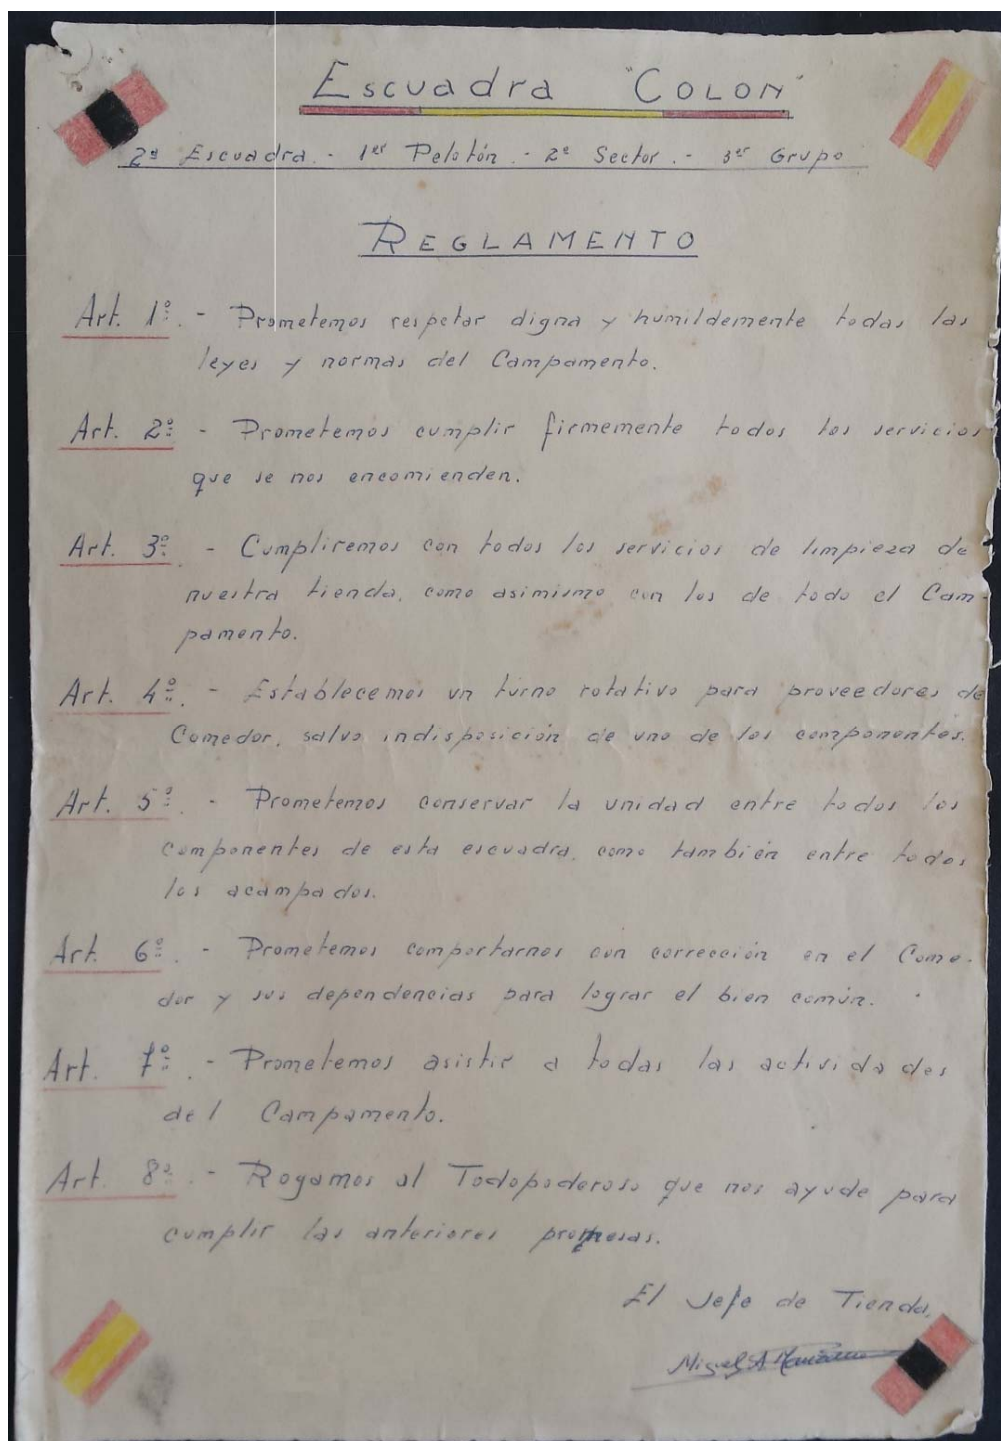 Escuadra "COLON"
2ª Escuadra.- 1er Pelotón.- 2º Sector.- 3er Grupo
REGLAMENTO
Art. 1º.- Prometemos respetar digna y humildemente todas las
leyes y normas del Campamento.
Art. 2º - Prometemos cumplir firmemente todos los servicios
que se nos encomienden.
Art. 3º - Cumpliremos con todos los servicios de limpieza de
nuestra tienda, como asimismo con los de todo el Cam-
pamento.
Art. 4º. - Establecemos un turno rotativo para proveedores de
Comedor, salvo indisposición de uno de los componentes.
Art. 5º. - Prometemos conservar la unidad entre todos los
componentes de esta escuadra, como también entre todos
los acampados.
Art. 6º. - Prometemos comportarnos con corrección en el Come-
dor y sus dependencias para lograr el bien común.
Art. 7º. - Prometemos asistir a todas las actividades
del Campamento.
Art. 8º. - Rogamos al Todopoderoso que nos ayude para
cumplir las anteriores promesas.
El Jefe de Tienda,
Miguel A.